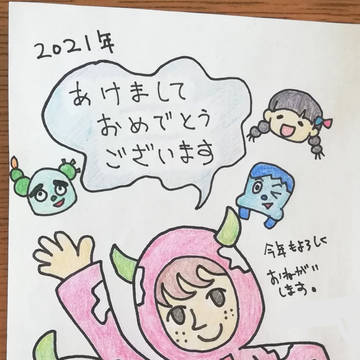 2021年
あけまして
おめでとう
ございます
今年もよろしく
おねがい
します。